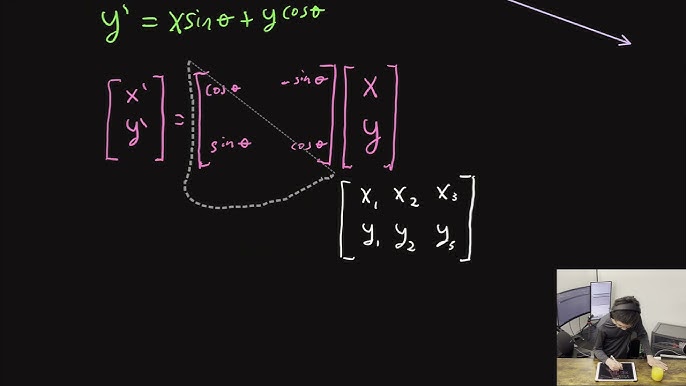 y' = x sinθ + y cosθ
[x' y'] = [cosθ -sinθ sinθ cosθ] [x y]
[x₁ x₂ x₃
y₁ y₂ y₃]